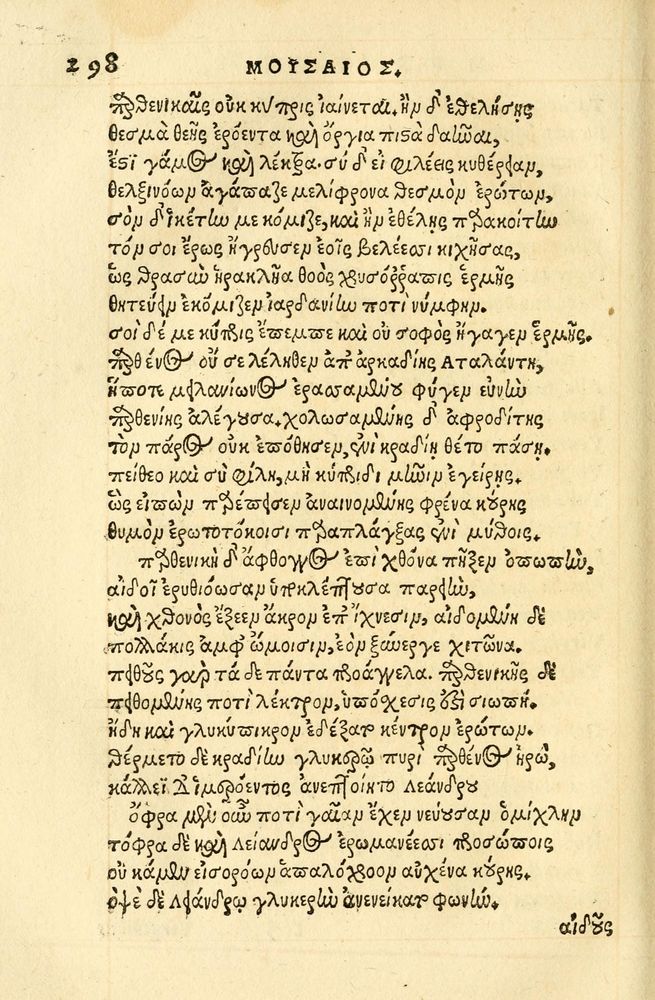 298 ΜΟΥΣΑΙΟΣ.
Παρθενικαῖς οὐκ κυπρις ἰαίνεται. ἢν δ' ἐθελήσῃς
θεσμὰ θεῆς ἐρόεντα καὶ ὄργια πιστὰ δαῆναι,
ἔστι γάμος καὶ λέκτρα. σύ δ' εἰ φιλέεις κυθέρειαν,
θελξινόων ἀγάπαζε μελίφρονα θεσμὸν ἐρώτων,
σὸν δ' ἱκέτην με κόμιζε, καὶ ἢν ἐθέλῃς παρακοίτην
τόν σοι ἔρως ἤγρευσεν ἑοῖς βελέεσσι κιχήσας,
ὡς θρασὺν ἡρακλῆα θοὸς χρυσόρραπις ἑρμῆς
θητεύειν ἐκόμιζεν ἰαρδανίην ποτὶ νύμφην.
σοὶ δέ με κύπρις ἔπεμπε καὶ οὐ σοφὸς ἤγαγεν ἑρμῆς.
Παρθένος οὔ σε λέληθεν ἀπ' ἀρκαδίης Αταλάντη,
ἥ ποτε μειλανίωνος ἐρασσαμένου φύγεν εὐνὴν
παρθενίης ἀλέγουσα. χολωσαμένης δ' ἀφροδίτης
τὸν πάρος οὐκ ἐπόθησεν, ἐνὶ κραδίῃ θέτο πάσῃ.
πείθεο καὶ σὺ φίλη, μὴ κύπριδι μῆνιν ἐγείρῃς.
ὣς εἰπὼν παρέπεισεν ἀναινομένης φρένα κούρης
θυμὸν ἐρωτοτόκοισι παραπλάγξας ἐνὶ μύθοις.
παρθενικὴ δ' ἄφθογγος ἐπὶ χθόνα πῆξεν ὀπωπὴν,
αἰδοῖ ἐρυθιόωσαν ὑποκλέπτουσα παρειὴν,
καὶ χθονὸς ἔξεεν ἄκρον ἐπ' ἴχνεσιν, αἰδομένη δὲ
πολλάκις ἀμφ' ὤμοισιν, ἑὸν ξυνέεργε χιτῶνα.
πειθοῦς γὰρ τά δε πάντα προάγγελα. παρθενικῆς δὲ
πειθομένης ποτὶ λέκτρον, ὑπόσχεσις ἐστὶ σιωπή.
ἤδη καὶ γλυκύπικρον ἐδέξατο κέντρον ἐρώτων.
θέρμετο δὲ κραδίην γλυκερῷ πυρὶ παρθένος ἡρὼ,
κάλλεϊ δ' ἱμερόεντος ἀνεπτοίητο Λεάνδρου
ὄφρα μὲν οὖν ποτὶ γαῖαν ἔχεν νεύουσαν ὁμίχλην
τόφρα δὲ καὶ Λείανδρος ἐρωμανέεσσι προσώποις
οὐ κάμεν εἰσορόων ἁπαλόχροον αὐχένα κούρης.
ὀψὲ δὲ Λειάνδρῳ γλυκερὴν ἀνενείκατο φωνὴν.
αἰδοῦς